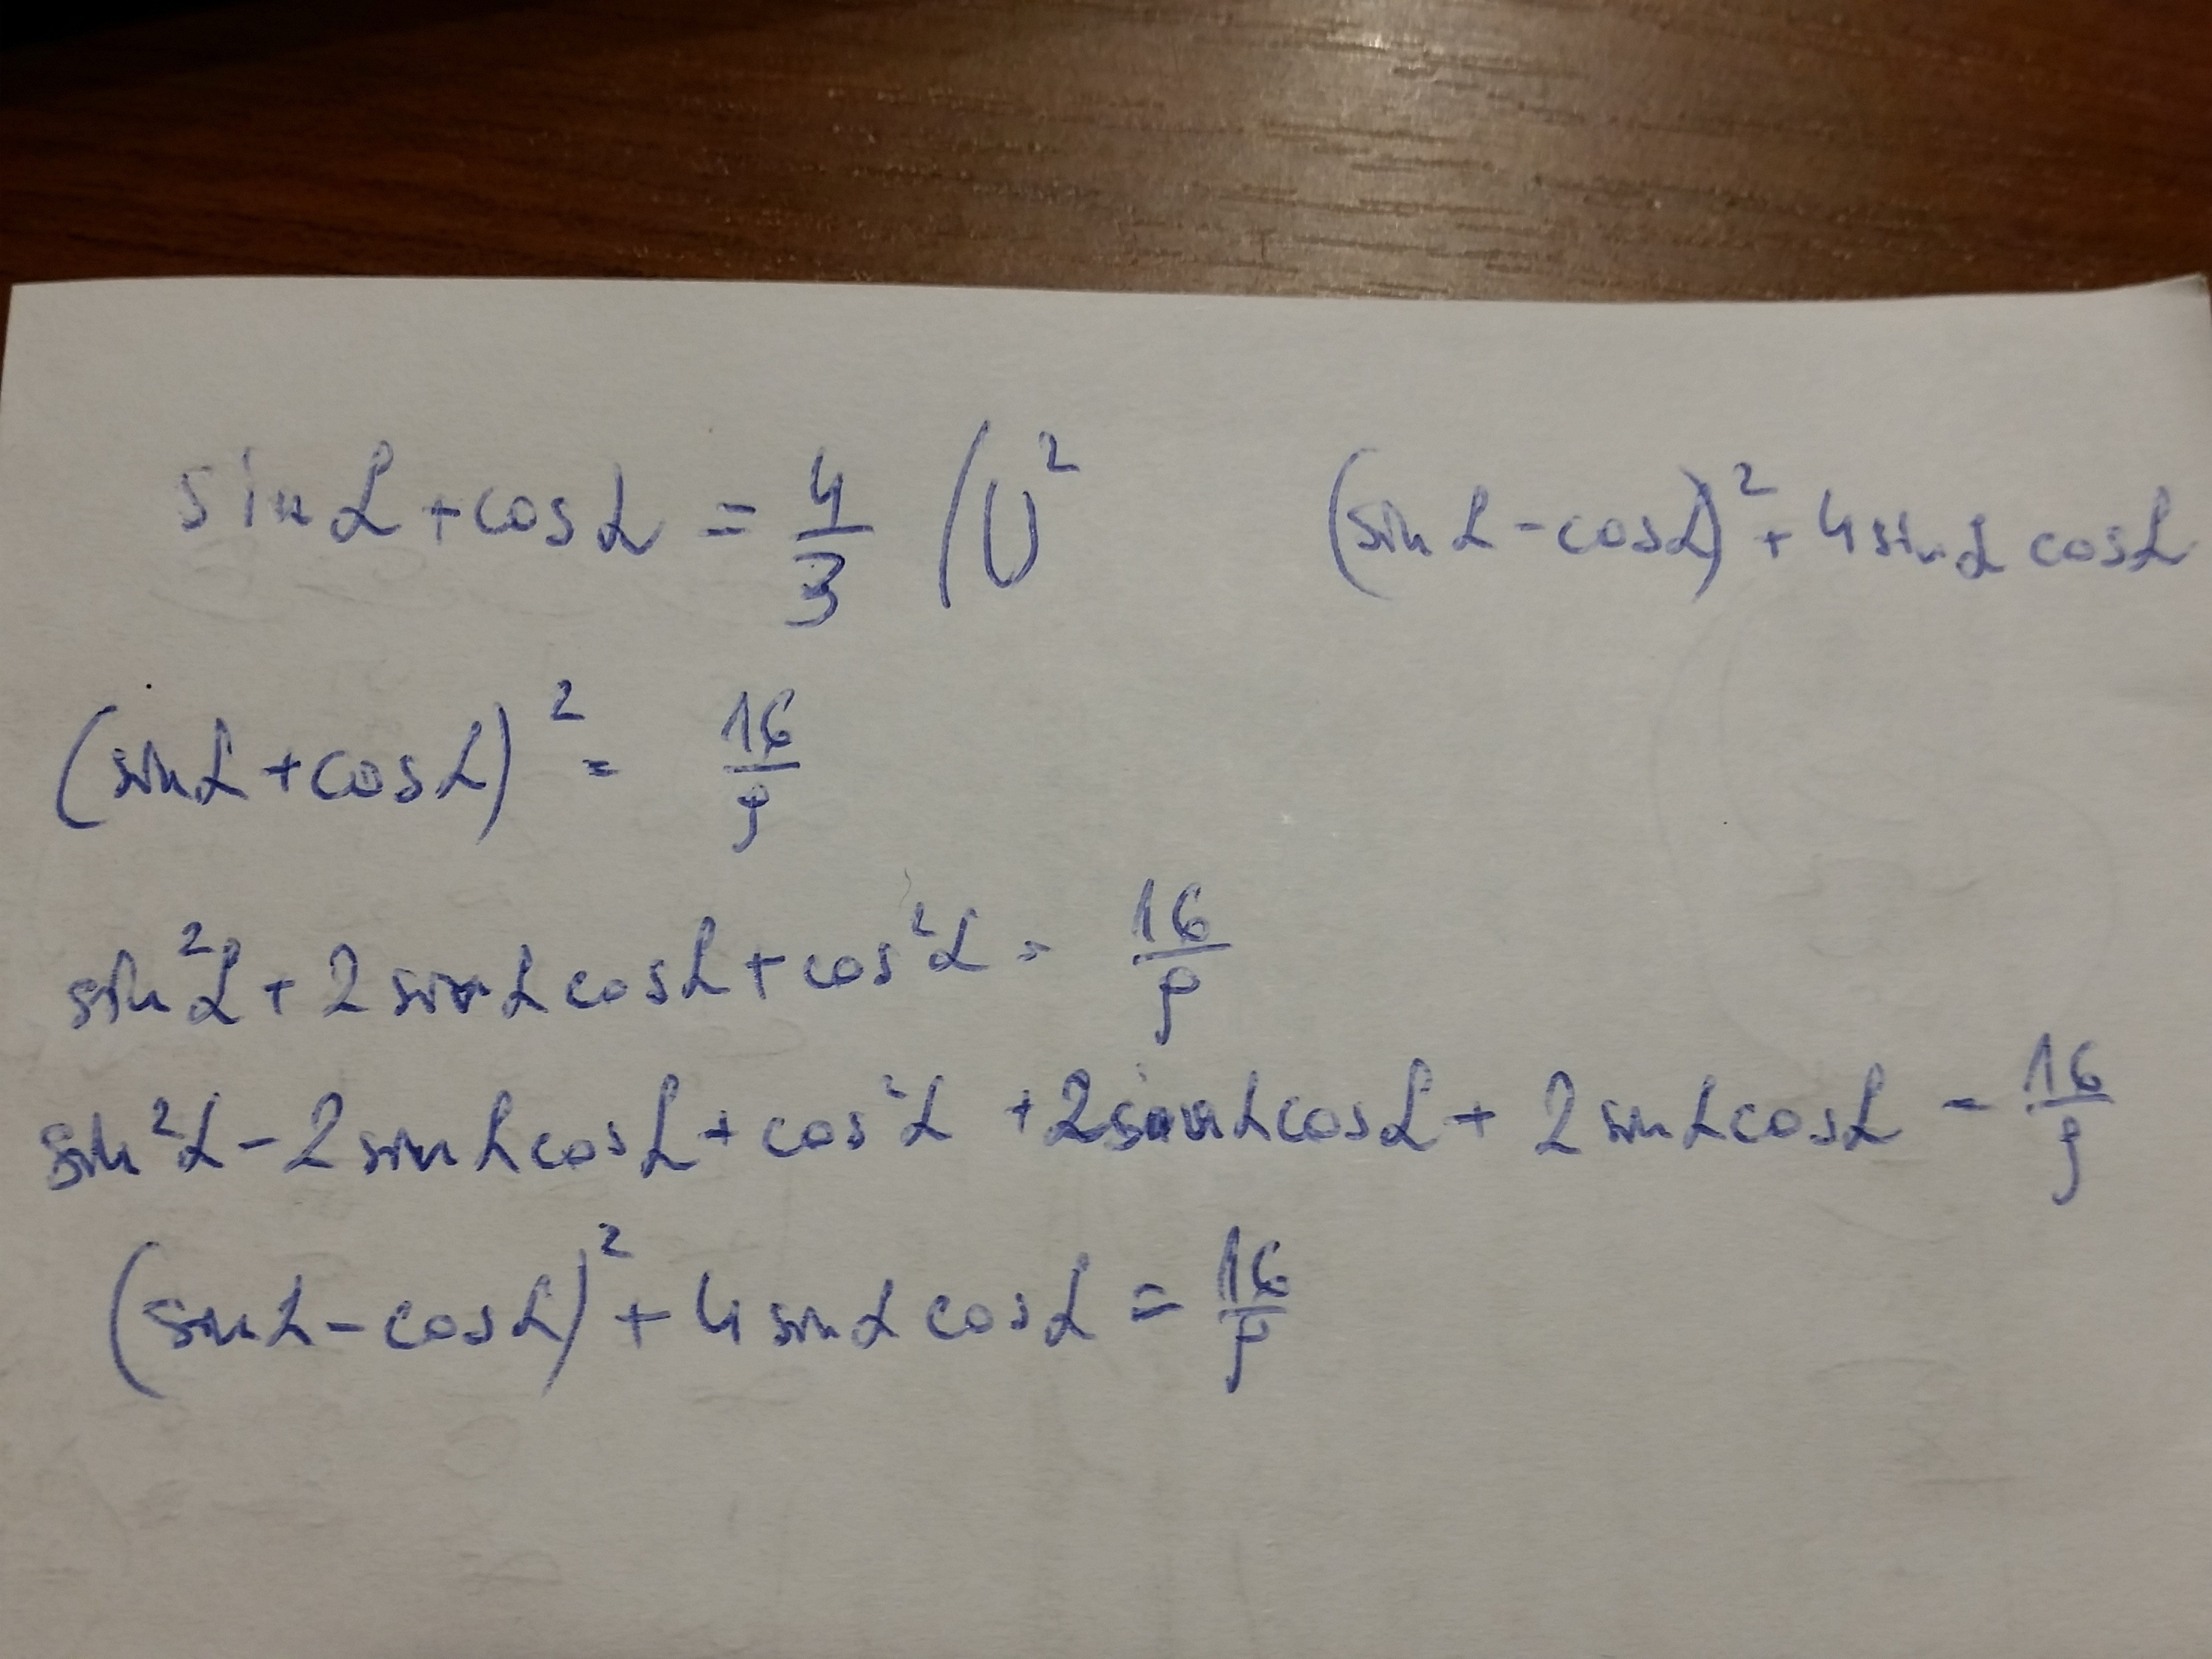 sin α + cos α = 4/3 /()² (sin α - cos α)² + 4 sin α cos α
(sin α + cos α)² = 16/9
sin²α + 2 sin α cos α + cos²α = 16/9
sin²α - 2 sin α cos α + cos²α + 2 sin α cos α + 2 sin α cos α = 16/9
(sin α - cos α)² + 4 sin α cos α = 16/9